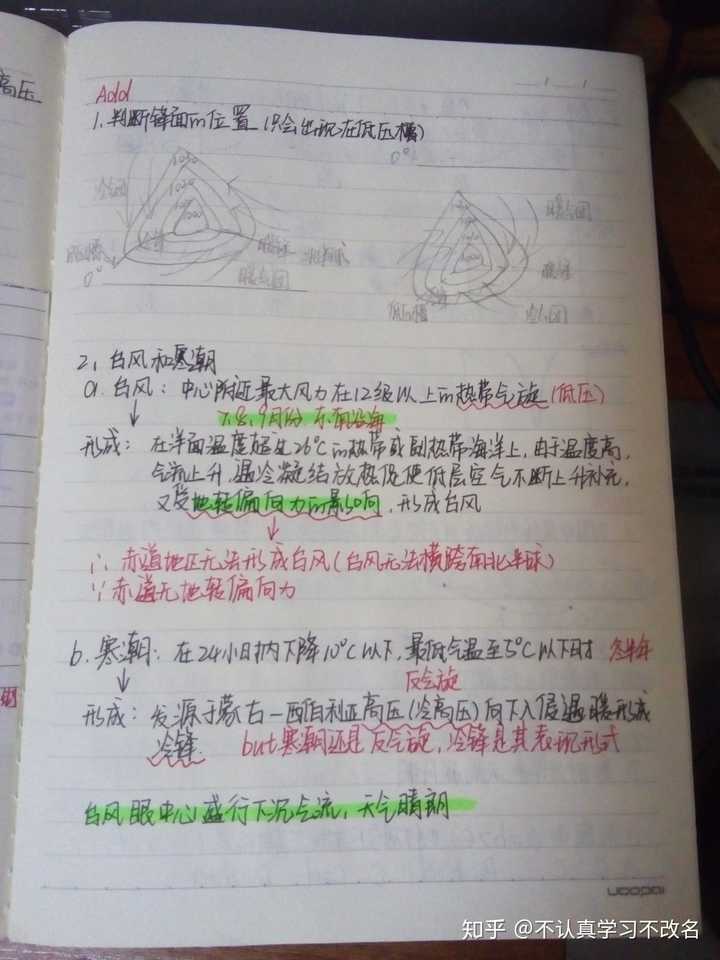 高压
Add
1. 判断锋面的位置 (只会出现在低压槽)
0°
1030
1020
冷气团
暖气团
低压槽
冷锋
暖锋
北半球
0°
暖气团
暖锋
低压槽
冷气团
2. 台风和寒潮
a. 台风: 中心附近最大风力在12级以上的热带气旋 (低压)
7.8.9月份 东南沿海
形成: 在洋面温度超过26℃的热带或副热带海洋上, 由于温度高,
气流上升, 遇冷凝结放热促使低层空气不断上升补充,
又受地转偏向力的影响, 形成台风
∴ 赤道地区无法形成台风 (台风无法横跨南北半球)
∵ 赤道无地转偏向力
b. 寒潮: 在24小时内下降10℃以下, 最低气温至5℃以下时 冬半年
反气旋
形成: 发源于蒙古—西伯利亚高压 (冷高压) 向下入侵遇暖形成
冷锋. but寒潮还是反气旋, 冷锋是其表现形式
台风眼中心盛行下沉气流, 天气晴朗
ucopai
知乎 @不认真学习不改名